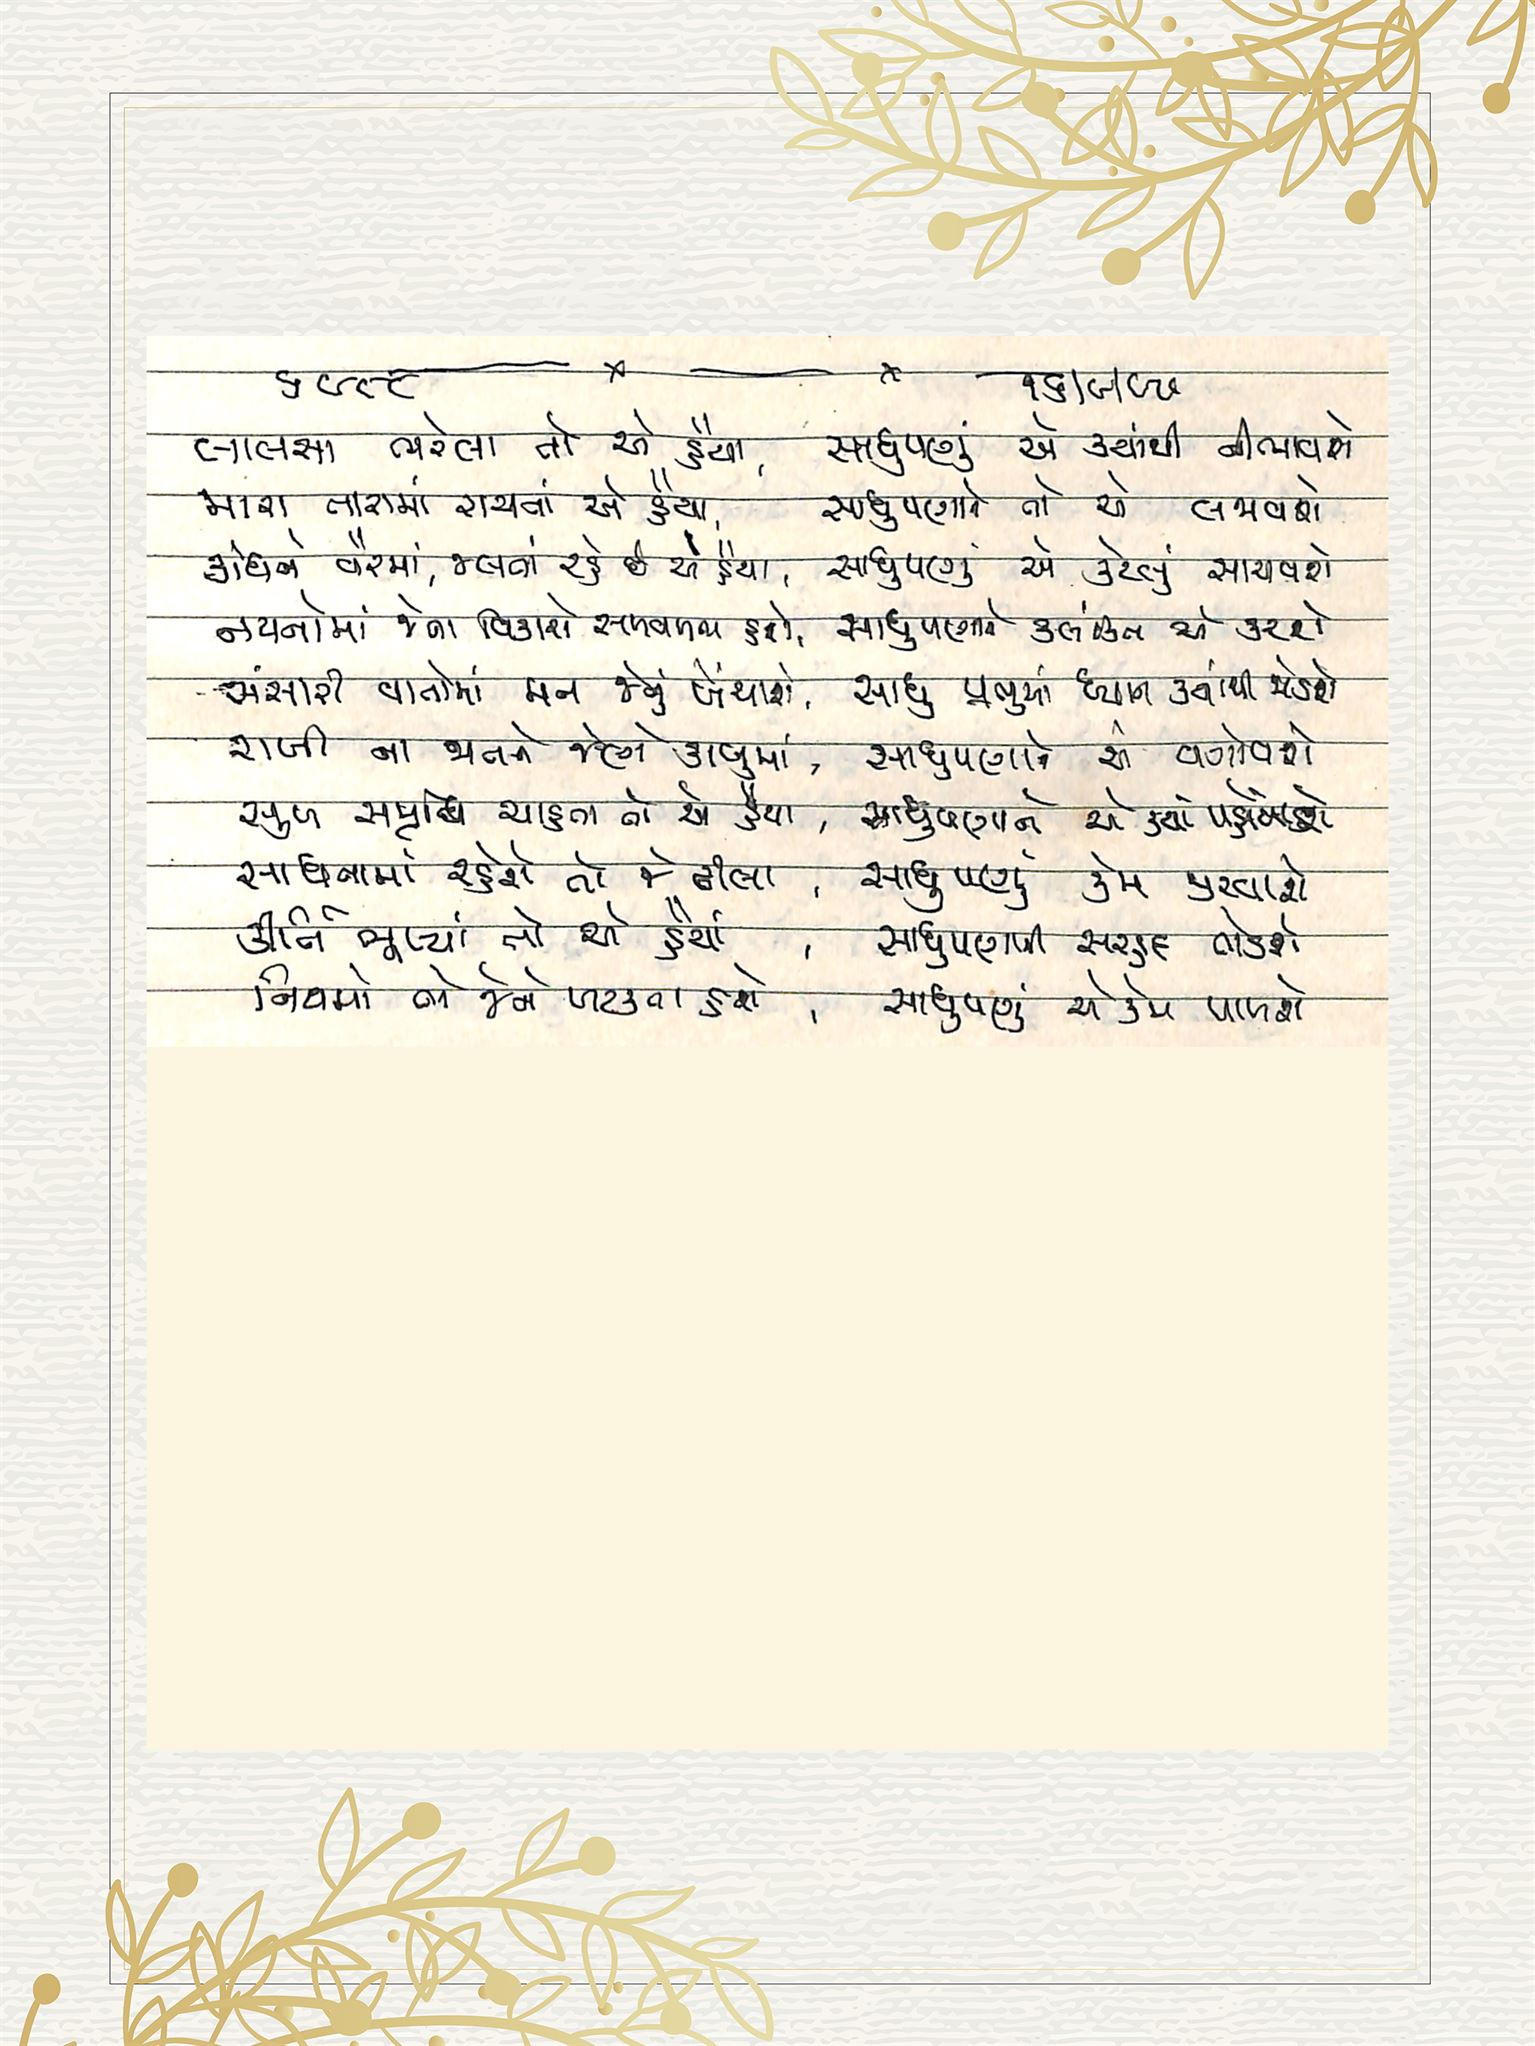 લાલસા ભરેલા તો એ હૈયા, સાધુપણું એ ક્યાંથી નીભાવશે
મારા તારામાં રાચતાં એ હૈયા, સાધુપણાને તો એ લજાવશે
ક્રોધને વૈરમાં, જલતાં રહે છે એ હૈયા, સાધુપણું એ કેટલું સાચવશે
નયનોમાં જેના વિકારો સળવળતા હશે, સાધુપણાને કલંકીત એ કરશે
સંસારી વાતોમાં મન જેનું ખેંચાશે, સાધુ પ્રભુમાં ધ્યાન ક્યાંથી જોડશે
રાખી ના મનને જેણે કાબુમાં, સાધુપણાને એ વગોવશે
સુખ સમૃધ્ધિ ચાહતા તો એ હૈયા, સાધુપણાને એ ક્યાં પહોંચાડશે
સાધનામાં રહેશે તો જે ઢીલા, સાધુપણું કેમ પુરવાશે
કીર્તિ ભૂખ્યાં તો એ હૈયાં, સાધુપણાની સરહદ તોડશે
નિયમો તો જેને ખટકતા હશે, સાધુપણું એ કેમ પાળશે